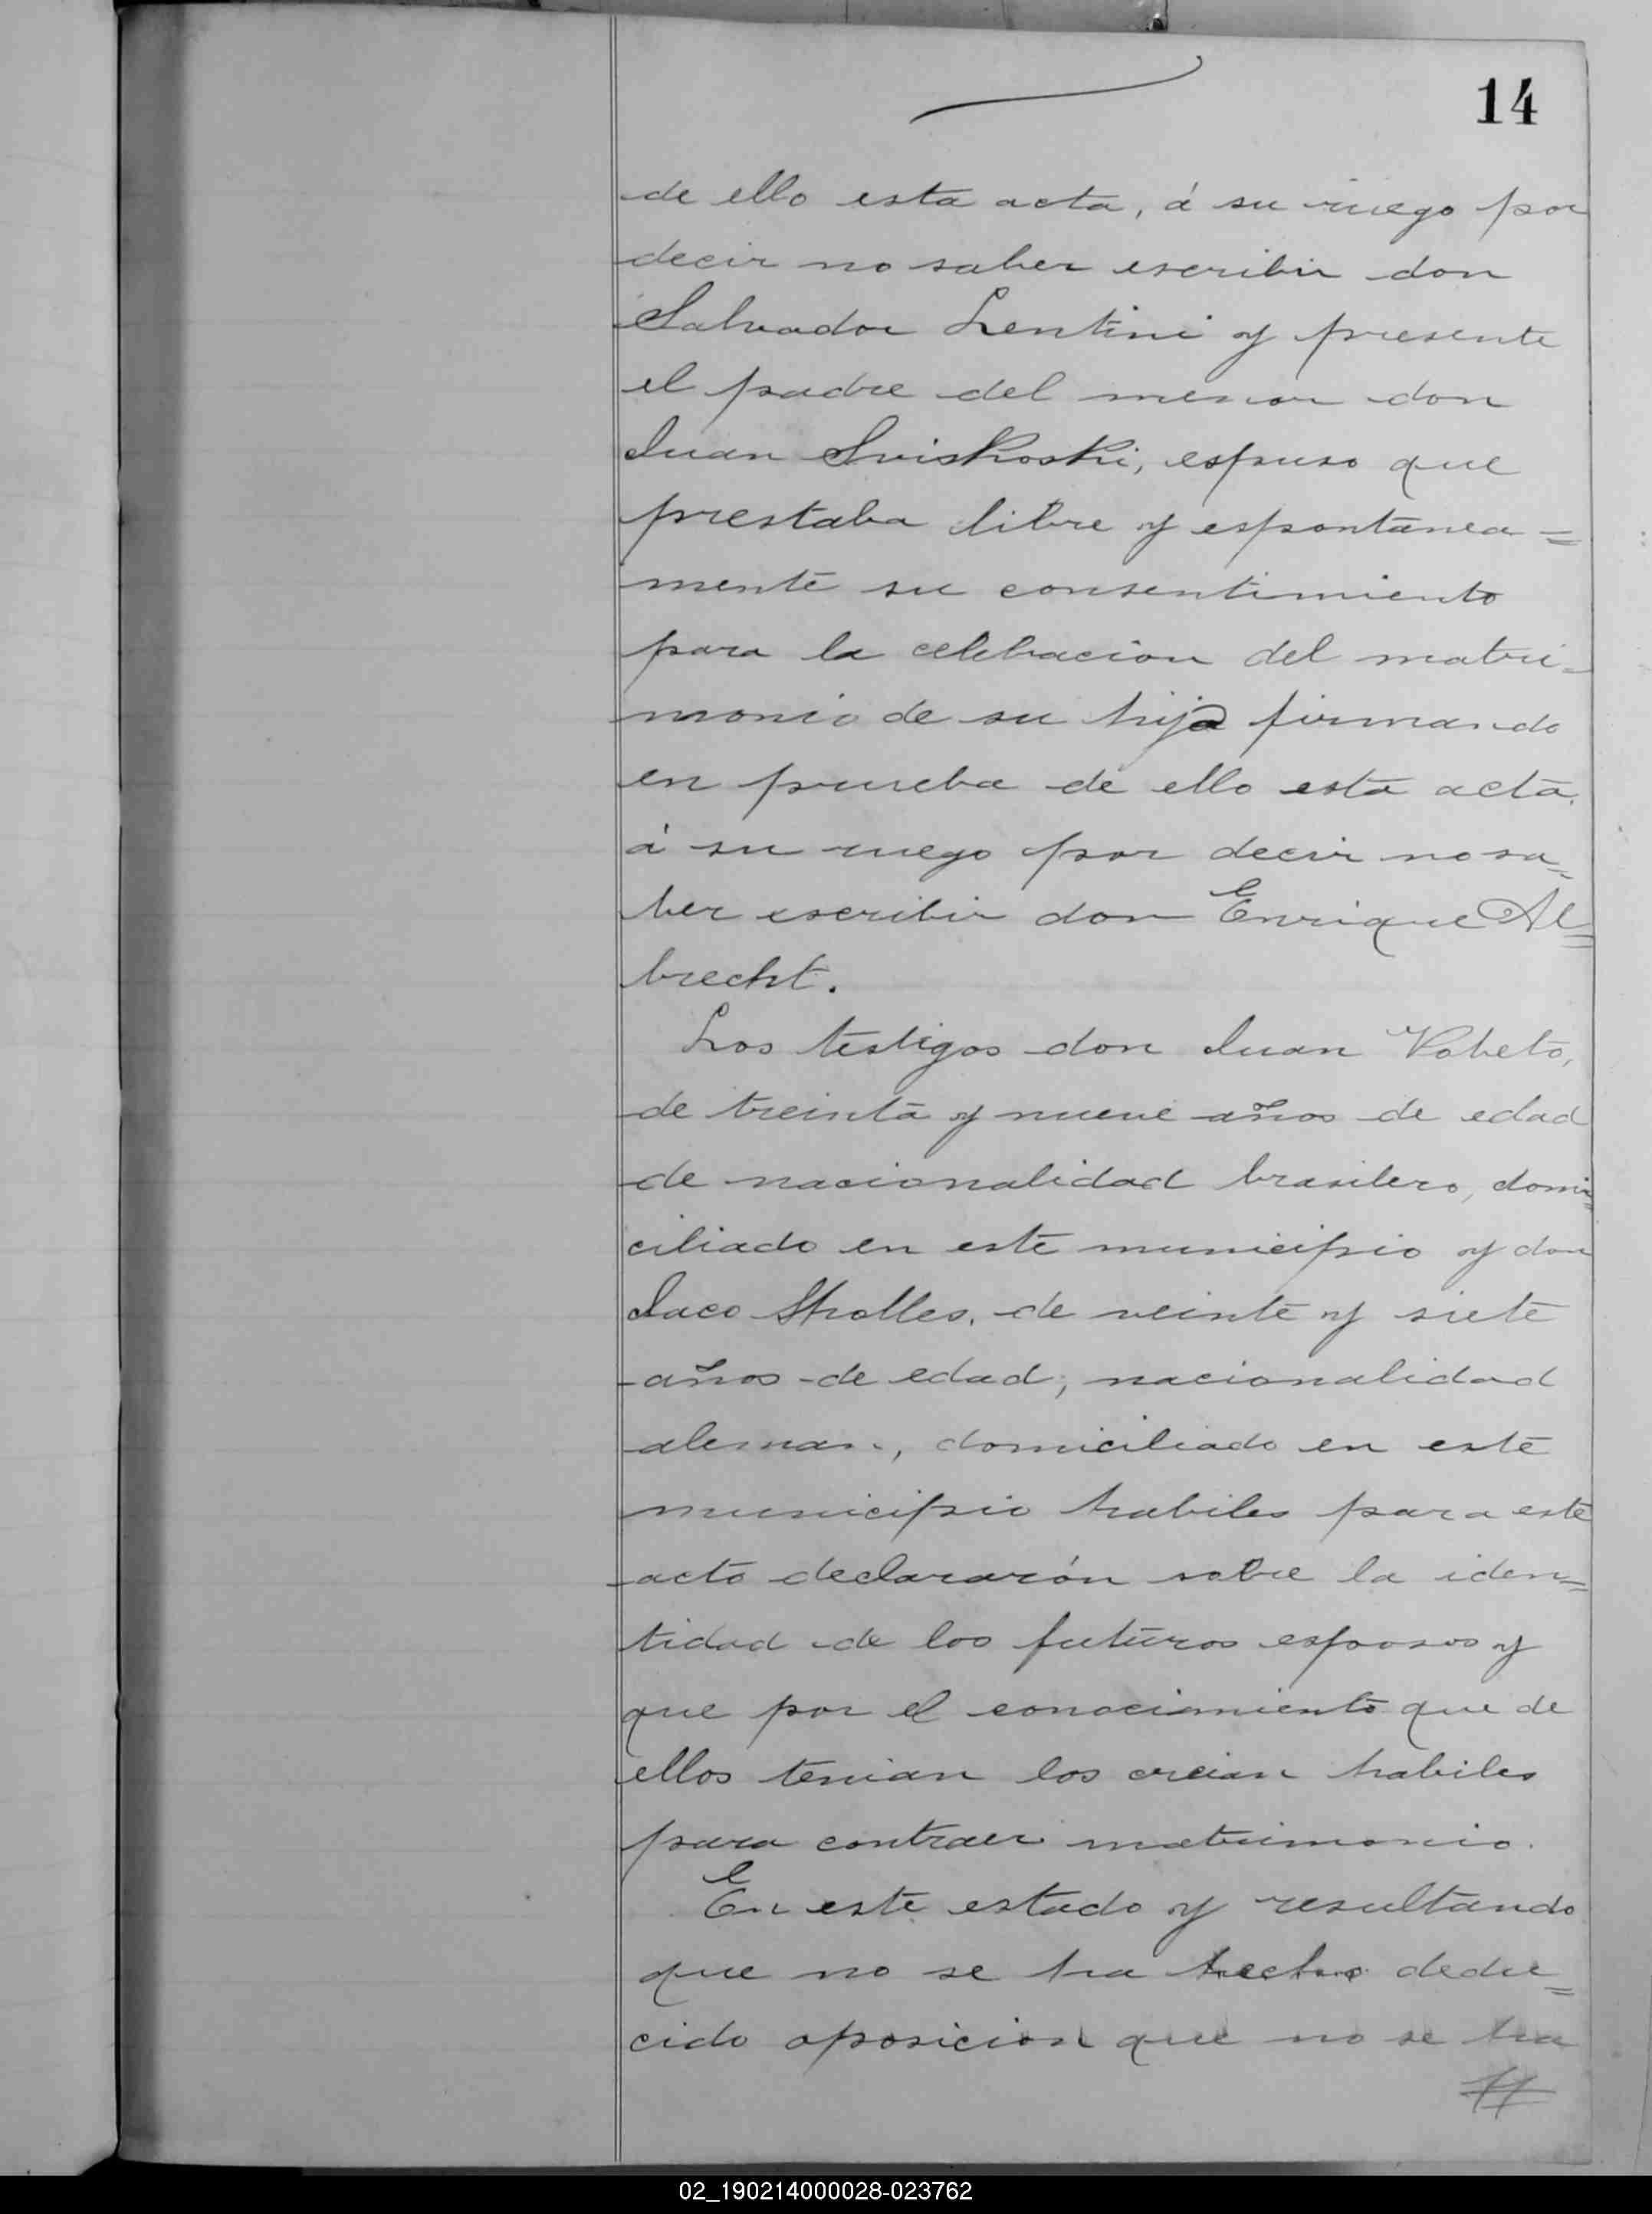 14
de ello esta acta, á su ruego por
decir no saber escribir don
Salvador Lentini y presente
el padre del menor don
Juan Sviskoski, espuso que
prestaba libre y espontanea=
mente su consentimiento
para la celebracion del matri=
monio de su hija firmando
en prueba de ello esta acta.
á su ruego por decir no sa=
ber escribir don Enrique Al=
brecht.
Los testigos don Juan Vobeto,
de treinta y nueve años de edad
de nacionalidad brasilero, domi=
ciliado en este municipio y don
Jaco Sholles, de veinte y siete
años de edad, nacionalidad
aleman, domiciliado en este
municipio habiles para este
acto declararón sobre la iden=
tidad de los futuros esposos y
que por el conocimiento que de
ellos tenian los creian habiles
para contraer matrimonio.
En este estado y resultando
que no se ha hecho dedu=
cido oposicion que no se ha
02_190214000028-023762